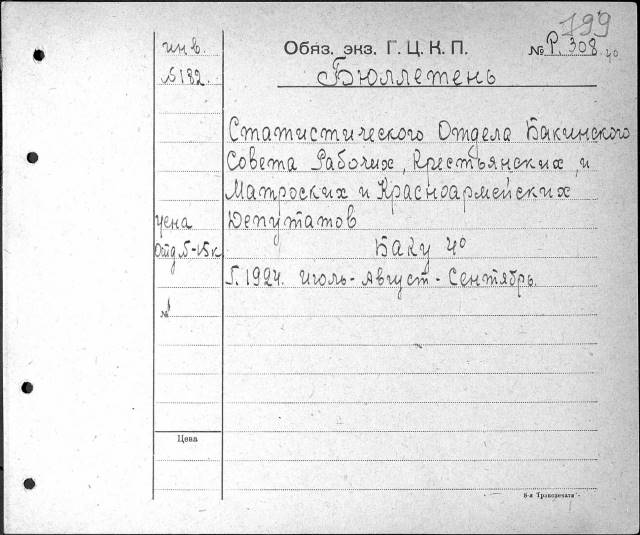 799
инв. Обяз. экз. Г. Ц. К. П. № Р. 308 40
№ 182. Бюллетень
Статистического Отдела Бакинского
Совета Рабочих, Крестьянских, и
Матроских и Красноармейских
цена Депутатов
Отд.№-15к Баку 4º
Г. 1924. Июль-Август-Сентябрь.
№
Цена
8-я Трипечати